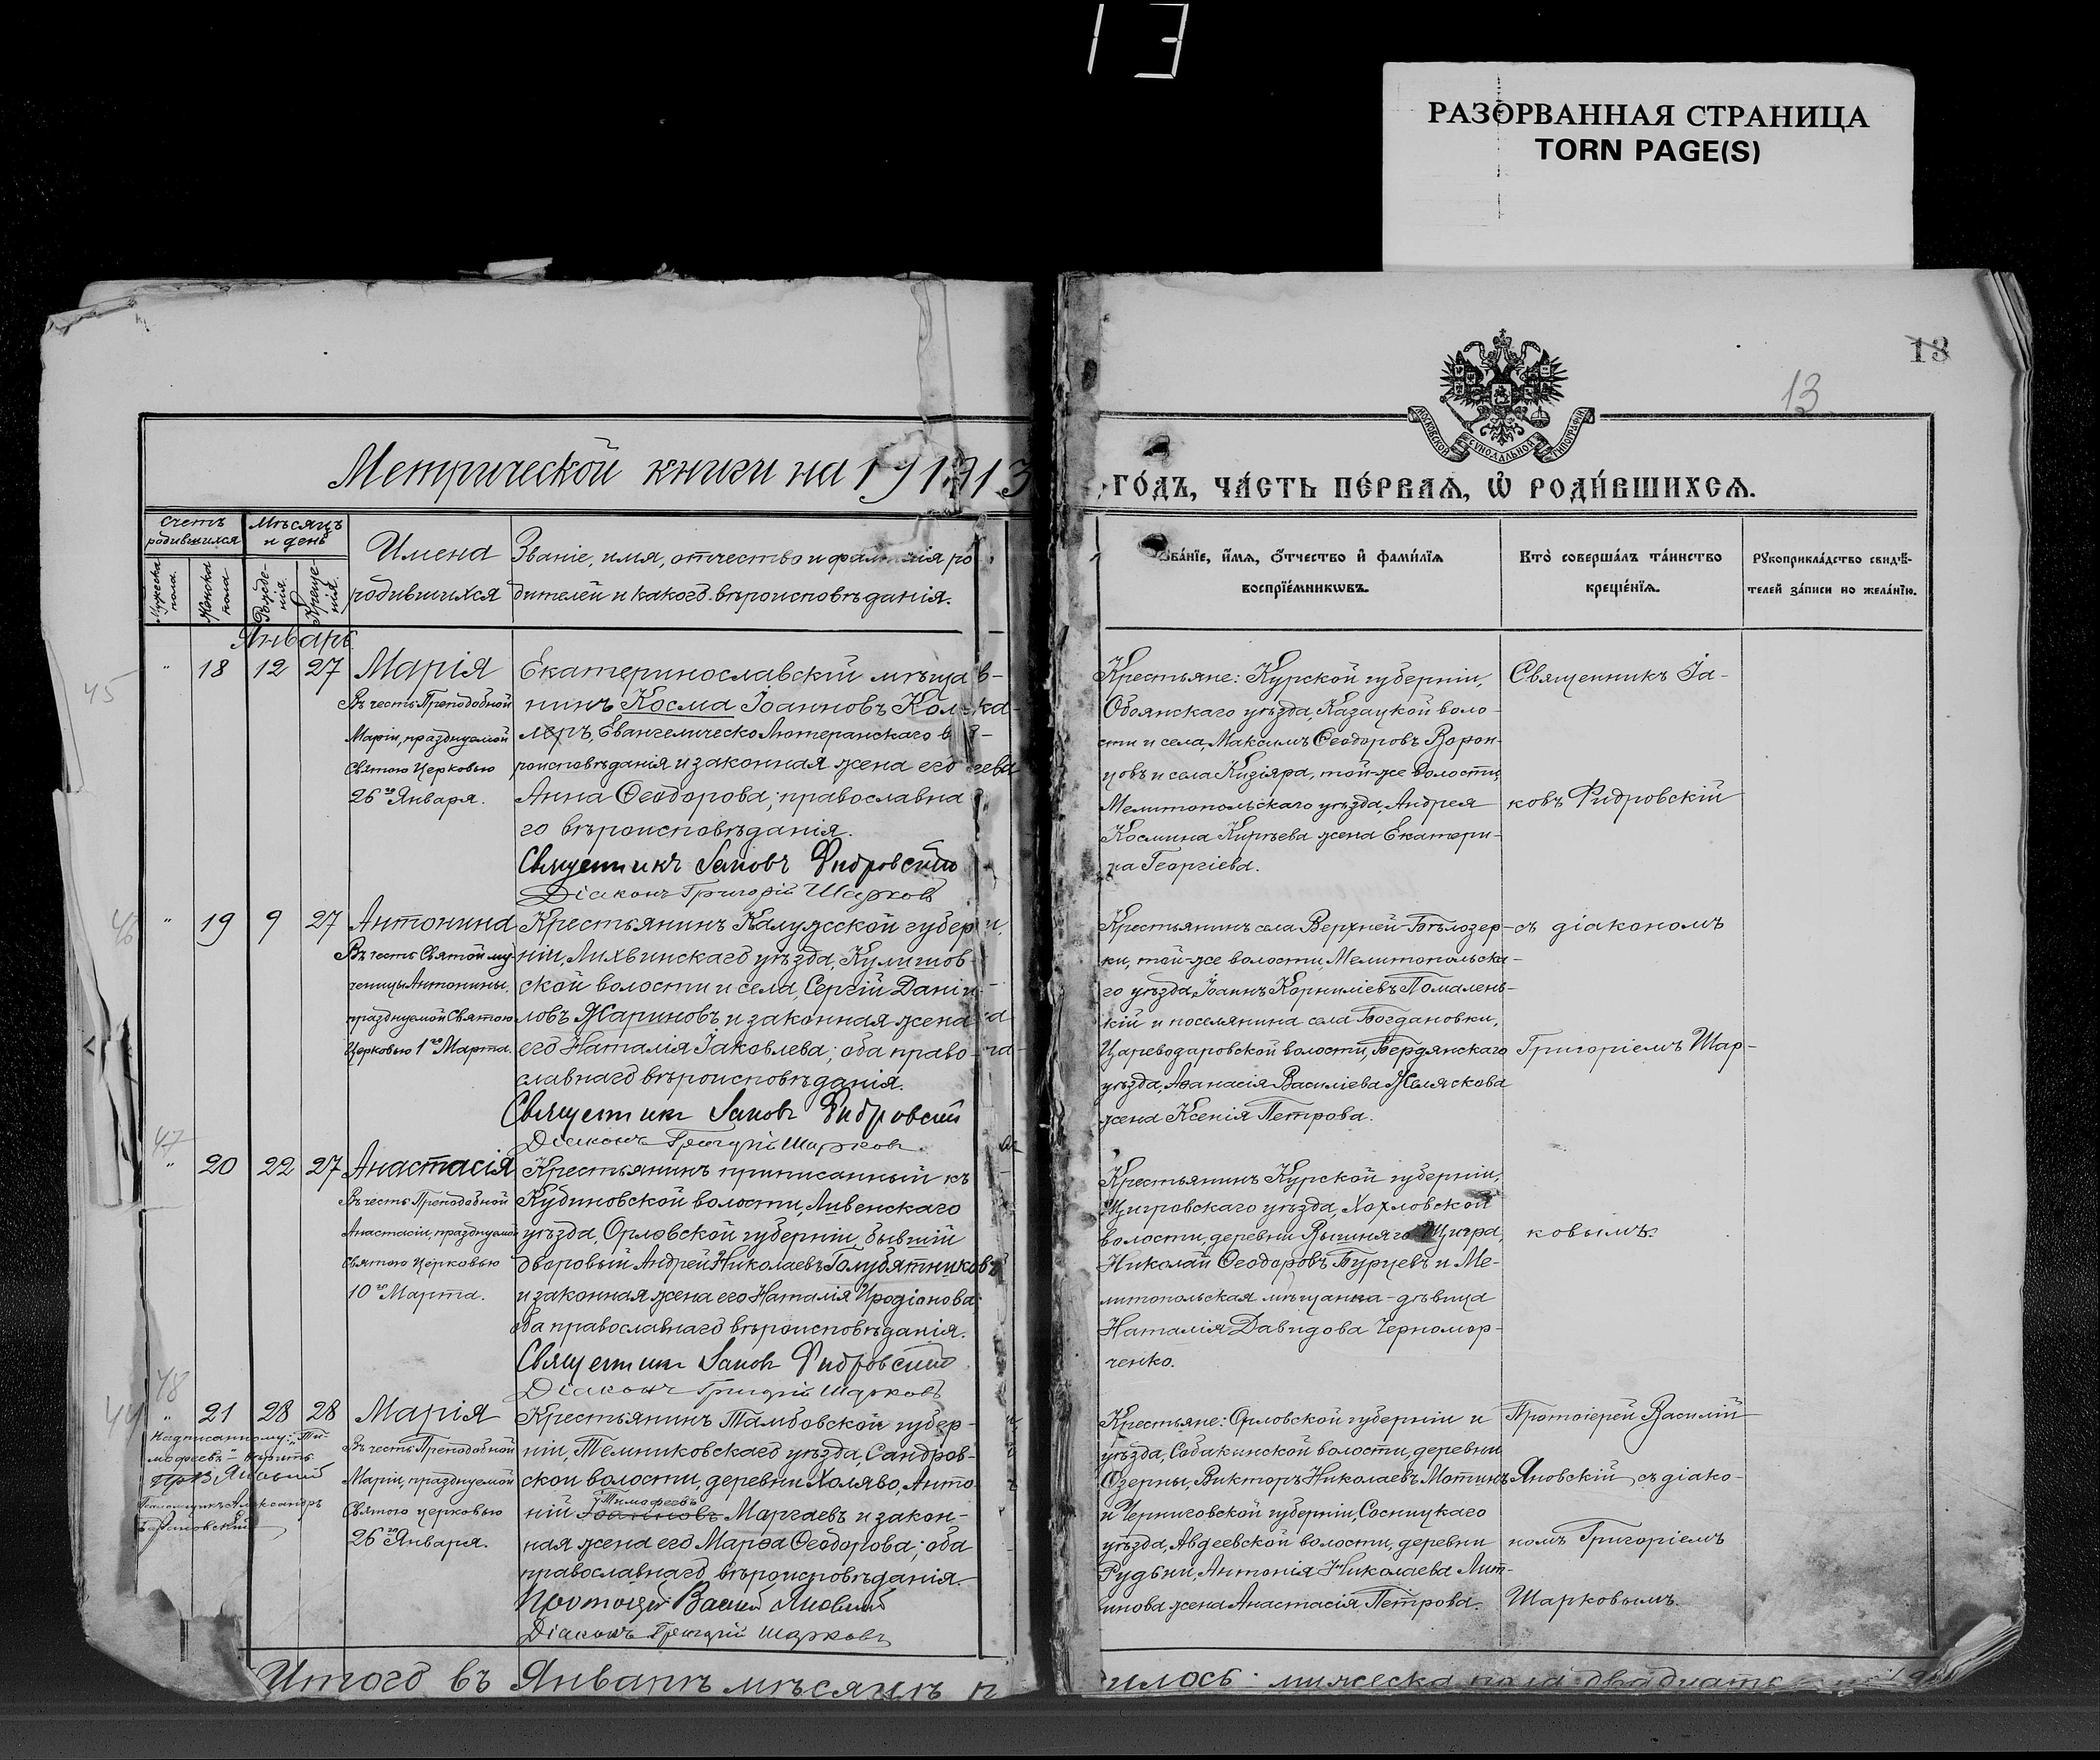 13
РАЗОРВАННАЯ СТРАНИЦА
TORN PAGE(S)
13
13
МОСКОВСКОЙ СѴНОДАЛЬНОЙ ТИПОГРАФІИ
Метрической книги на 191 913
го́дъ, ча́сть пе́рваѧ, ѡ҆ роди́вшихсѧ.
Счетъ родившихся
Мѣсяцъ и день
Мужеска пола.
Женска пола
Рожденія
Крещенія.
Имена родившихся
Званіе, имя, отчество и фамилія ро
дителей и какого вѣроисповѣданія.
ва́нїе, и҆́мѧ, ѻ҆́тчество и҆ фами́лїѧ
воспрїе́мникѡвъ.
Кто̀ соверша́лъ та́инство
креще́нїѧ.
Рꙋкоприкла́дство свидѣ́-
телей за́писи по жела́нїю.
Январь
45
" 18 12 27 Марія
Въ честь Преподобной
Маріи, празднуемой
Святою Церковью
26го Января.
Екатеринославскій мѣща
нинъ Косма Іоанновъ Кол
леръ, Евангелическо Лютеранскаго в
роисповѣданія и законная жена его
Анна Ѳеодорова; православна
го вѣроисповѣданія.
Священникъ Іаковъ Фидровскій
Діаконъ Григорій Шарковъ
Крестьяне: Курской губерніи,
Обоянскаго уѣзда, Казацкой воло-
сти и села, Максимъ Ѳеодоровъ Ворон-
цовъ и села Кизіяра, той-же волости
Мелитопольскаго уѣзда, Андрея
Космина Киріева жена Екатери-
на Георгіева.
Священникъ Іа-
ковъ Фидровскій
46
" 19 9 27 Антонина
Въ честь Святой му-
ченицы Антонины,
празднуемой Святою
Церковью 1го Марта.
Крестьянинъ Калужской губер
ніи, Лихвинскаго уѣзда, Кулишов-
ской волости и села, Сергій Даніи
ловъ Жариновъ и законная жена
его Наталія Іаковлева; оба право-
славнаго вѣроисповѣданія.
Священникъ Іаковъ Фидровскій
Діаконъ Григорій Шарковъ
Крестьянинъ села Верхней-Бѣлозер-
ки, той-же волости, Мелитопольска-
го уѣзда, Іоаннъ Корниліевъ Помалень-
кій и поселянина села Богдановки,
Цареводаровской волости, Бердянскаго
уѣзда, Аѳанасія Василіева Желяскова
жена Ксенія Петрова.
съ діакономъ
Григоріемъ Шар-
47
" 20 22 27 Анастасія
Въ честь Преподобной
Анастасіи, празднуемой
Святою Церковью
10го Марта.
Крестьянинъ приписанный къ
Кудиновской волости, Ливенскаго
уѣзда, Орловской губерніи, бывшій
дворовый Андрей Николаевъ Голубятниковъ
и законная жена его Наталія Иродіонова;
оба православнаго вѣроисповѣданія.
Священникъ Іаковъ Фидровскій
Діаконъ Григорій Шарковъ
Крестьянинъ Курской губерніи,
Щигровскаго уѣзда, Хохловской
волости, деревни Вышняго Щигра,
Николай Ѳеодоровъ Бурцевъ и Ме-
литопольская мѣщанка-дѣвица
Наталія Давидова Черномор-
ченко.
ковымъ.
48
" 21 28 28 Марія
Въ честь Преподобной
Маріи, празднуемой
Святою церковью
26го Января.
Надписанному: "Ти-
моѳеевъ" - вѣрить.
Прот. В. Яновскій
Псаломщикъ Александръ
Крестьянинъ Тамбовской губер-
ніи, Темниковскаго уѣзда, Сандров-
ской волости, деревни Холяво, Анто
ній Іоанновъ Тимофеевъ Маргаевъ и закон-
ная жена его Марѳа Ѳеодорова; оба
православнаго вѣроисповѣданія.
Протоіерей Василій Яновскій
Діаконъ Григорій Шарковъ
Крестьяне: Орловской губерніи и
уѣзда, Собакинской волости, деревни
Озерны, Викторъ Николаевъ Мотинъ
и Черниговской губерніи, Сосницкаго
уѣзда, Авдеевской волости, деревни
Рудьни, Антонія Николаева Лит-
винова жена Анастасія Петрова.
Протоіерей Василій
Яновскій съ діако-
номъ Григоріемъ
Шарковымъ.
Итого въ Январѣ мѣсяцѣ р
дилось: мужеска пола двадцать